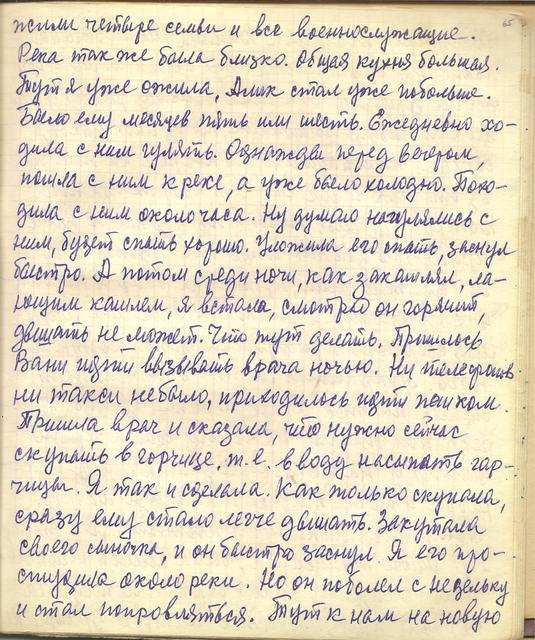 65
жили четыре семьи и все военнослужащие.
Река так же была близко. Общая кухня большая.
Тут я уже ожила, Алик стал уже побольше.
Было ему месяцев пять или шесть. Ежедневно хо-
дила с ним гулять. Однажды перед вечером,
пошла с ним к реке, а уже было холодно. Похо-
дила с ним около часа. Ну думаю нагулялись с
ним, будет спать хорошо. Уложила его спать, заснул
быстро. А потом среди ночи, как закашлял, ла-
ющим кашлем, я встала, смотрю он горячит,
двишать не может. Что тут делать. Пришлось
Вани идти вызывать врача ночью. Ни телефонов
ни такси небыло, приходилось идти пешком.
Пришла врач и сказала, что нужно сейчас
скупать в горчице, т.е. в воду насыпать гар-
чицы. Я так и сделала. Как только скупала,
сразу ему стало легче двишать. Закутала
своего сыночка, и он быстро заснул. Я его про-
студила около реки. Но он поболел с недельку
и стал попровляться. Тут к нам на новую